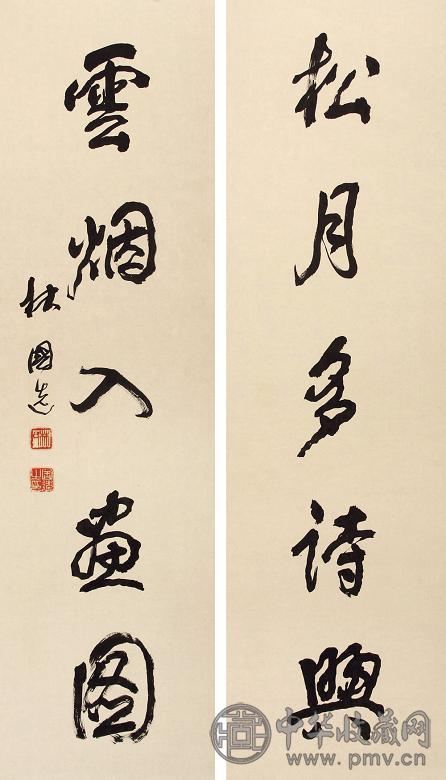 松月多诗興
雲烟入画图
國
中华收藏网
www.pmv.cn